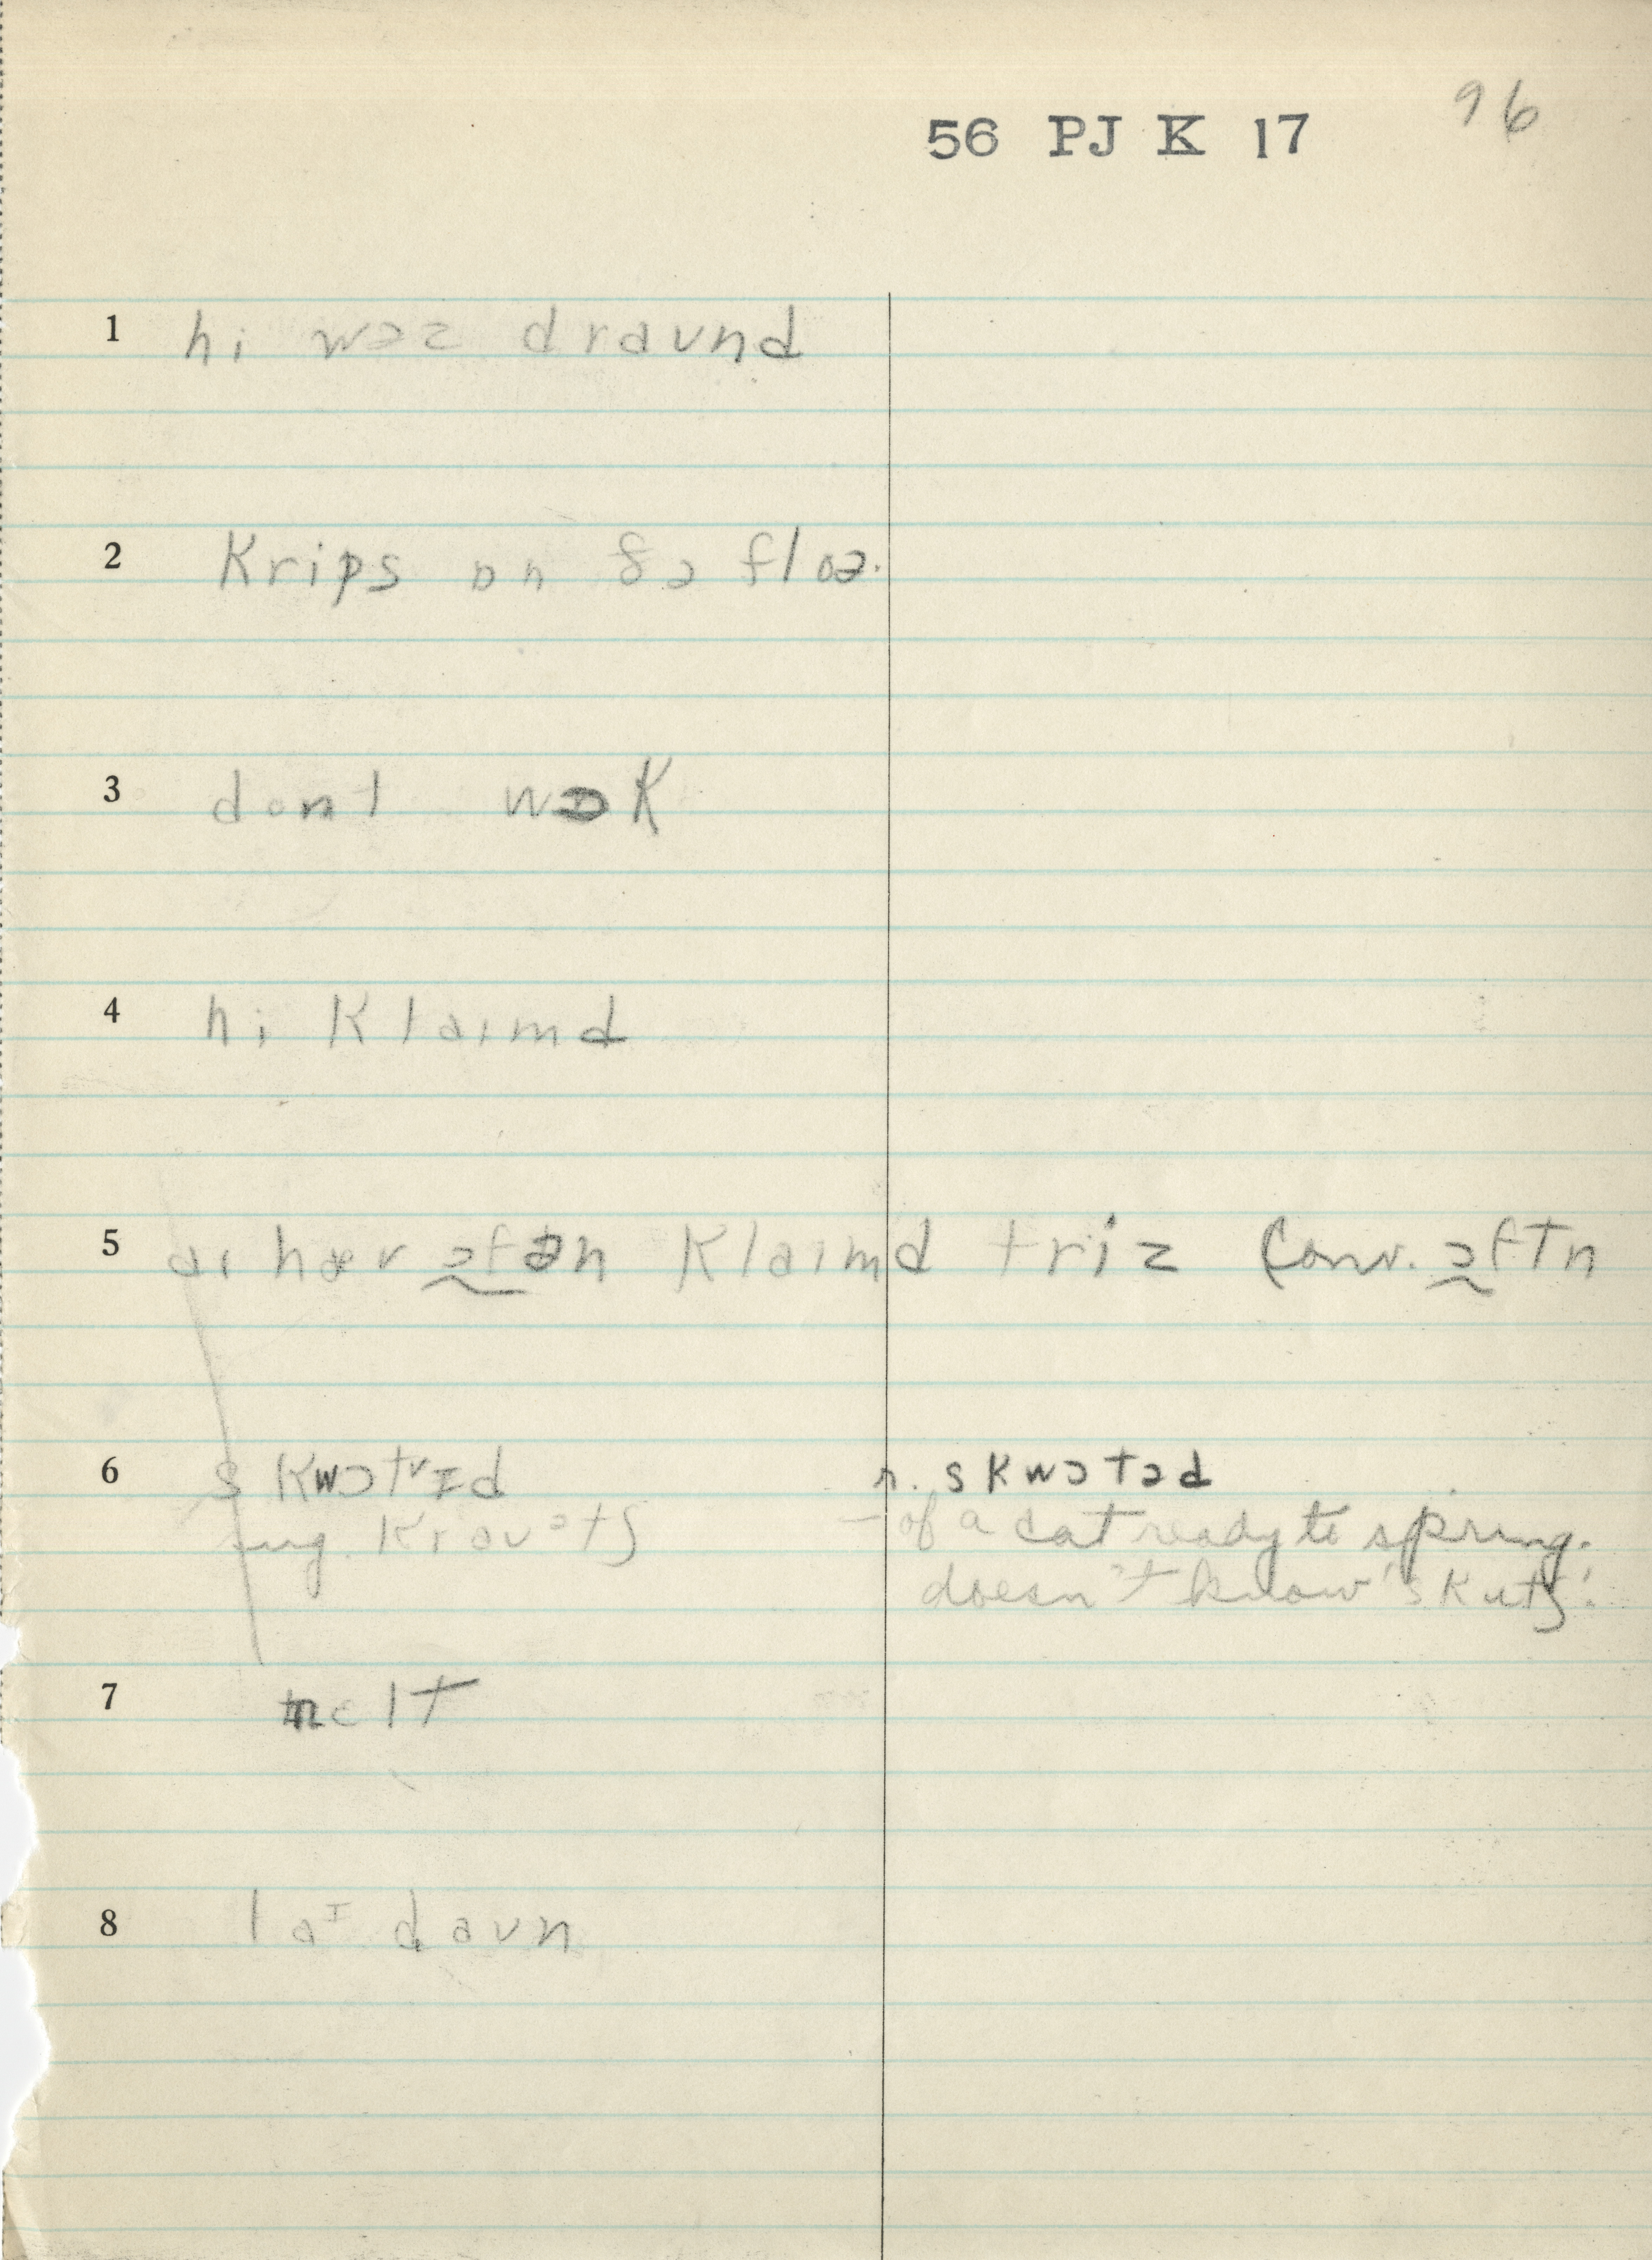 96
56 PJ K 17
1 hi wəz draund
2 krips ɒn ðə floə.
3 dont wɒk
4 hi klaımd
5 aı hæv ɔfən klaımd triz Conv. ɔftn
6 skwɔtɪd r. skwɔtəd
sug. krauətʃ – of a cat ready to spring.
doesn't know 'skutʃ'.
7 melt
8 laɪ daun